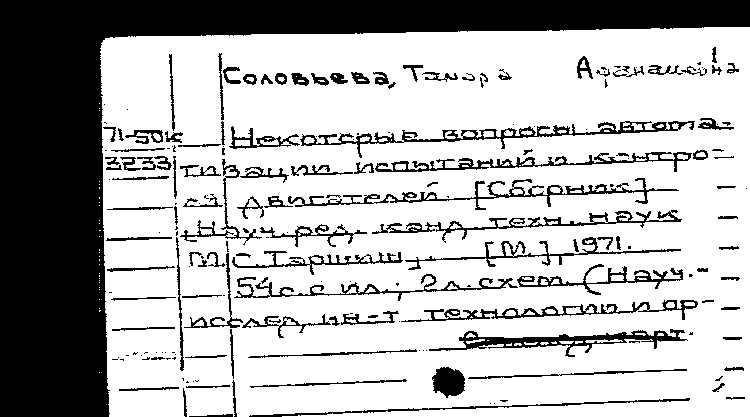 Соловьева, Тамара Афанасьевна
71-50к Некоторые вопросы автома-
3233 тизации испытаний и контро-
ля двигателей. [Сборник]
[Науч. ред. канд. техн. наук
М.С. ]. [М.], 1971.
54 с. с ил.; 2 л. схем. (Науч.-
исслед. ин-т технологии и ор-